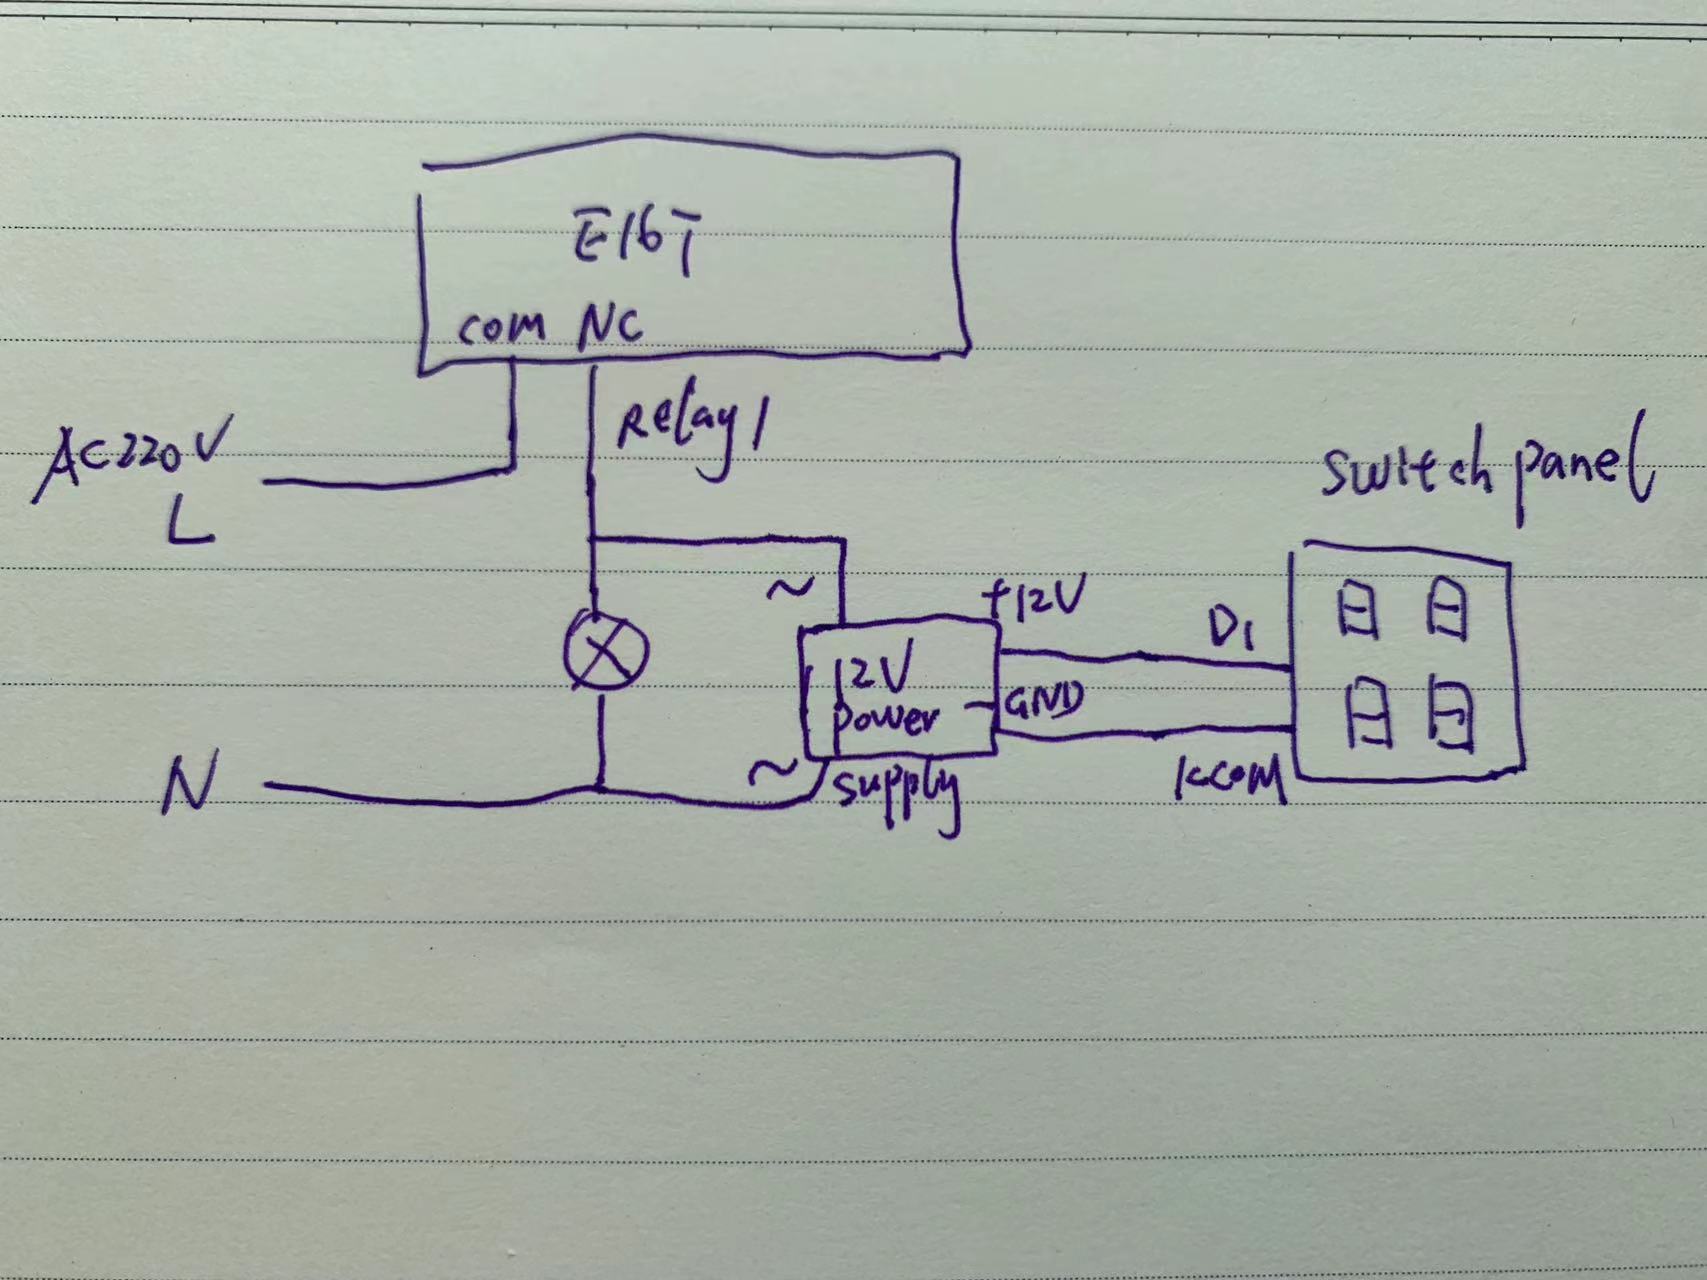 E16T
COM NC
Relay1
AC220V
L
switch panel
~
+12V
D1
12V
power
GND
N
~
supply
KCOM